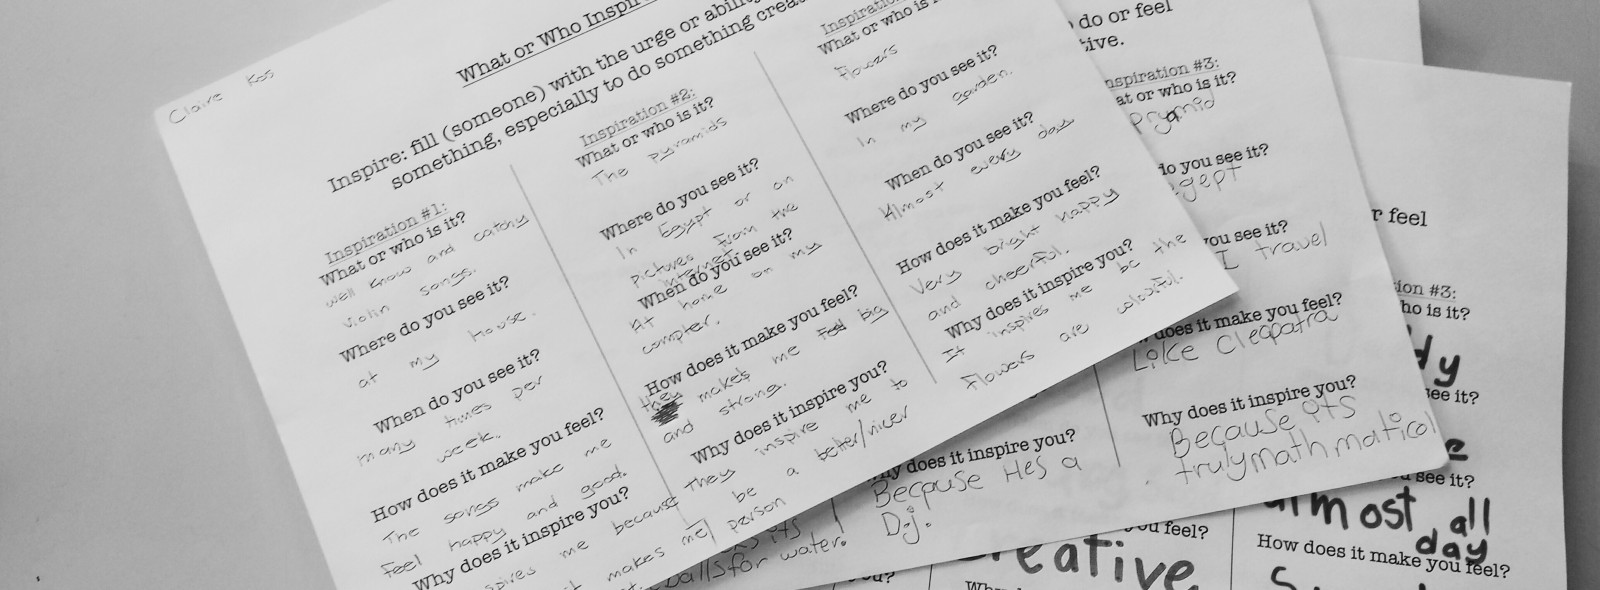 Claire Kos
What or Who Inspir
Inspire: fill (someone) with the urge or abili
something, especially to do something crea
Inspiration #1:
What or who is it?
well know and catchy
violin songs.
Where do you see it?
at my house.
When do you see it?
many times per
week.
How does it make you feel?
The songs make me
feel happy and good.
Why does it inspire you?
spires me because
t makes me
Inspiration #2:
What or who is it?
The pyramids
Where do you see it?
In Egypt or on
pictures from the
internet.
When do you see it?
At home on my
compter.
How does it make you feel?
they makes me feel big
and strong.
Why does it inspire you?
They inspire me to
be a better/nicer
person
Inspiration
What or who is
Flowers
Where do you see it?
In my garden.
When do you see it?
Almost every day
How does it make you feel?
Very bright happy
and cheerful.
Why does it inspire you?
It inspires me be the
Flowers are colourful.
do or feel
tive.
nspiration #3:
at or who is it?
Prymid
do you see it?
gept
you see it?
I travel
does it make you feel?
Like Cleopatra
Why does it inspire you?
Because its
truly math matical
hy does it inspire you?
Because Hes a
D.j.
its
balls for water.
r feel
ion #3:
ho is it?
dy
see it?
e
u see it?
almost all
day
How does it make you feel?
ou feel?
reative